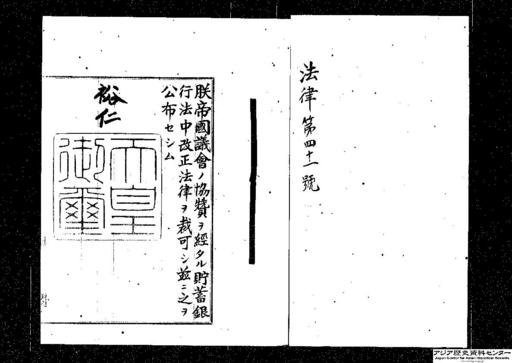 法律第四十一號
朕帝國議會ノ協贊ヲ經タル貯蓄銀
行法中改正法律ヲ裁可シ茲ニ之ヲ
公布セシム
裕仁
天皇
御璽
アジア歴史資料センター
Japan Center for Asian Historical Records